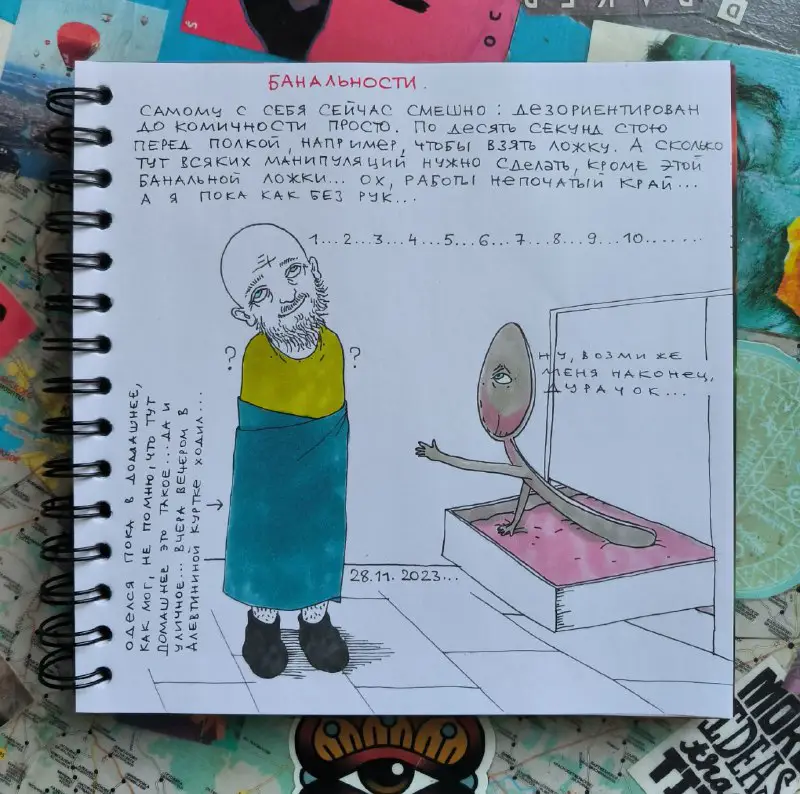 БАНАЛЬНОСТИ.
САМОМУ С СЕБЯ СЕЙЧАС СМЕШНО: ДЕЗОРИЕНТИРОВАН
ДО КОМИЧНОСТИ ПРОСТО. ПО ДЕСЯТЬ СЕКУНД СТОЮ
ПЕРЕД ПОЛКОЙ, НАПРИМЕР, ЧТОБЫ ВЗЯТЬ ЛОЖКУ. А СКОЛЬКО
ТУТ ВСЯКИХ МАНИПУЛЯЦИЙ НУЖНО СДЕЛАТЬ, КРОМЕ ЭТОЙ
БАНАЛЬНОЙ ЛОЖКИ... ОХ, РАБОТЫ НЕПОЧАТЫЙ КРАЙ...
А Я ПОКА КАК БЕЗ РУК...
1...2...3...4...5...6...7...8...9...10.......
? ?
НУ, ВОЗМИ ЖЕ
МЕНЯ НАКОНЕЦ,
ДУРАЧОК...
ОДЕЛСЯ ПОКА В ДОМАШНЕЕ,
КАК МОГ, НЕ ПОМНЮ, ЧТО ТУТ
ДОМАШНЕЕ ЭТО ТАКОЕ... ДА И
УЛИЧНОЕ... ВЧЕРА ВЕЧЕРОМ В
АЛЕВТИНИНОЙ КУРТКЕ ХОДИЛ...
28.11.2023...
MORE
IDEAS
than